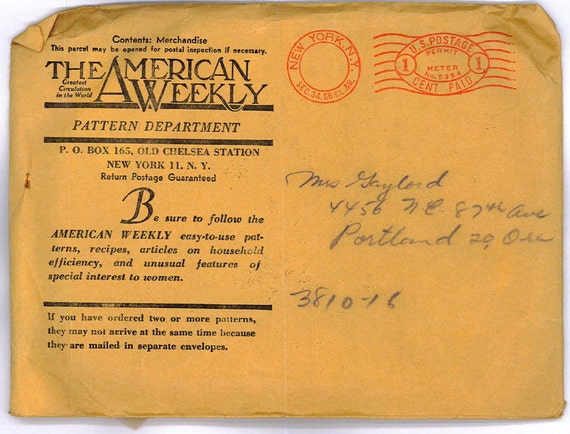 Contents: Merchandise
This parcel may be opened for postal inspection if necessary.
THE AMERICAN
Greatest
Circulation
in the World
WEEKLY
PATTERN DEPARTMENT
P. O. BOX 165, OLD CHELSEA STATION
NEW YORK 11, N. Y.
Return Postage Guaranteed
Be sure to follow the
AMERICAN WEEKLY easy-to-use pat-
terns, recipes, articles on household
efficiency, and unusual features of
special interest to women.
If you have ordered two or more patterns,
they may not arrive at the same time because
they are mailed in separate envelopes.
NEW YORK, N.Y.
SEC. 34.66 P.L.&R.
U.S. POSTAGE
PERMIT
1 METER 1
CENT PAID
Mrs Gaylord
4456 NE 87th Ave
Portland 20, Ore
3810-16